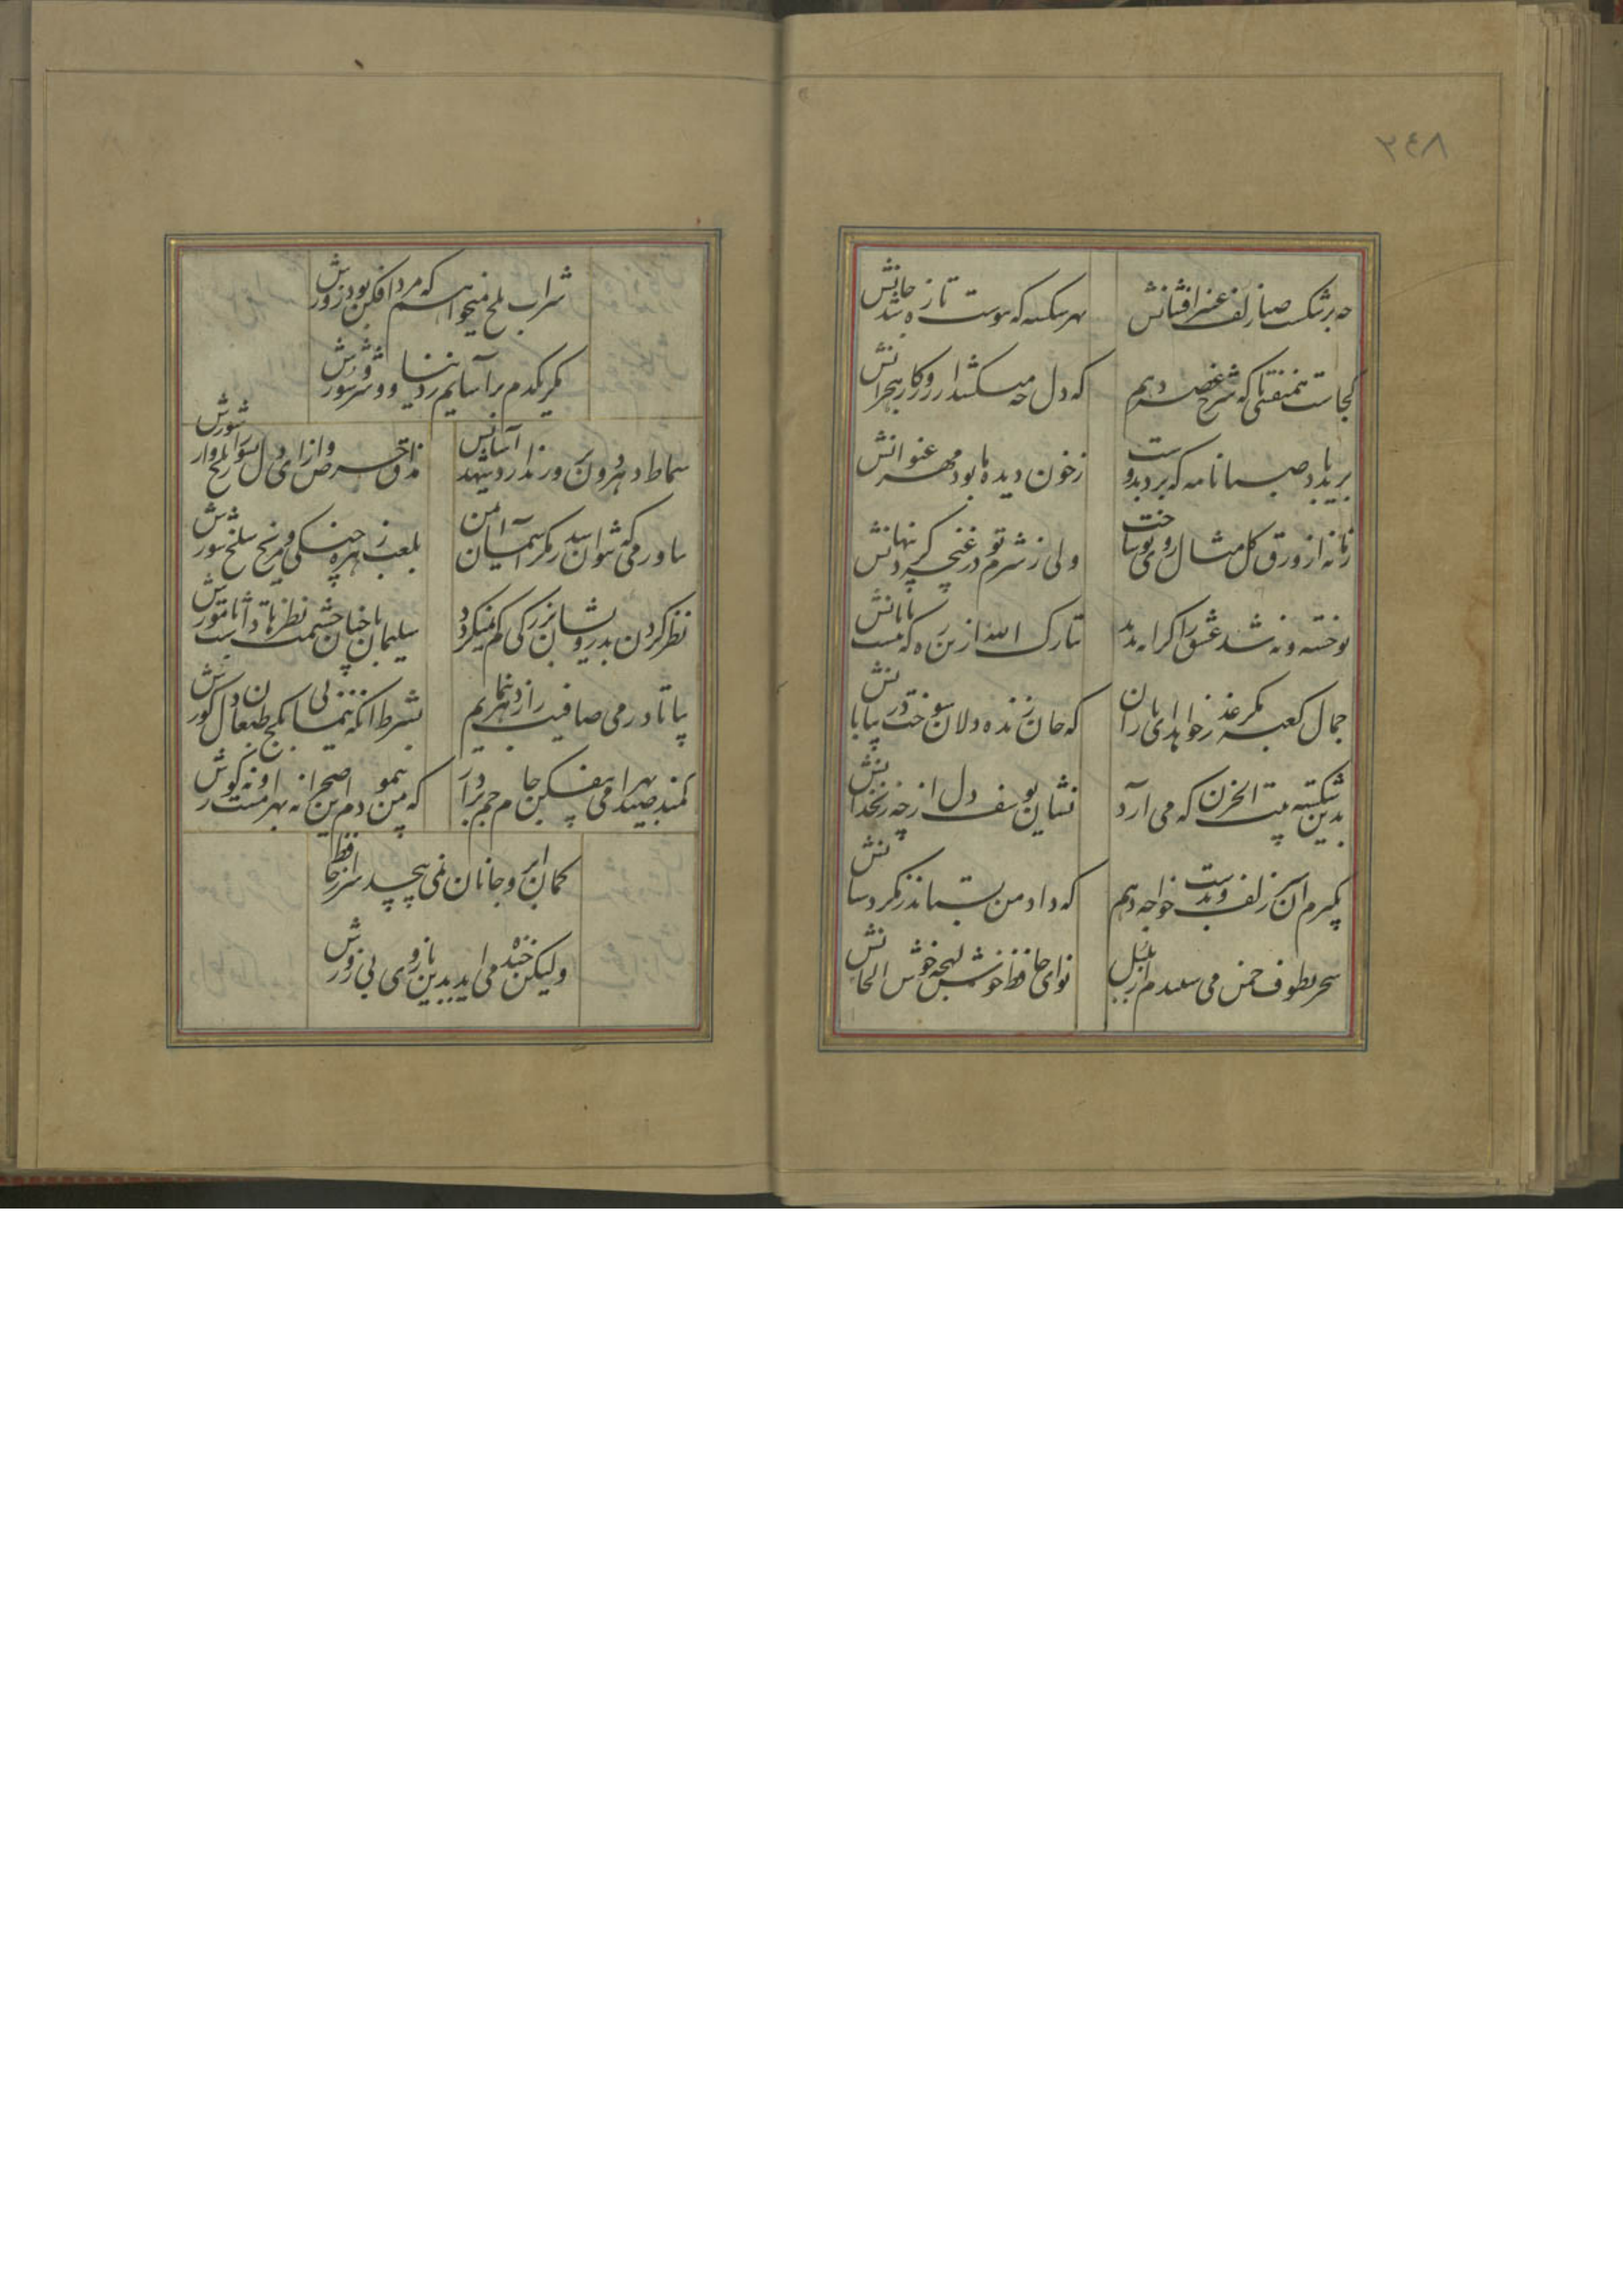 ٣٤٨
چه برشکست صبا زلف عنبر افشانش
بهر شکسته که پیوست تازه شد جانش
کجاست همنفسی تا که شرح غصه دهم
که دل چه میکشد از روزکار هجرانش
برید باد صبا نامه که برد بدوست
ز خون دیده ما بود مهر عنوانش
زمانه از ورق کل مثال روی تو ساخت
ولی ز شرم تو در غنچه کرد پنهانش
تو خفته و نه شد عشق را کرانه پدید
تبارک الله ازین ره که نیست پایانش
جمال کعبه مکر عذر رهروان خواهد
که جان زنده دلان سوخت در بیابانش
بدین شکسته بیت الحزن که می آرد
نشان یوسف دل از چه زنخدانش
بگیرم آن زلف و بدست خواجه دهم
که داد من بستاند مکر ز دستانش
سحر بطوف چمن می شنیدم از بلبل
نوای حافظ خوش لهجه خوش الحانش
شراب تلخ میخواهم که مرد افکن بود زورش
مکر یکدم بر آسایم ز دنیا و شر و شورش
سماط دهر دون پرور ندارد شهد آسایش
مذاق حرص و از ای دل بشوی از تلخ و از شورش
بیاور می که نتوان شد ز مکر آسمان ایمن
بلعب زهره چنکی و مریخ سلحشورش
نظر کردن بدرویشان بزرکی کم نمیکردد
سلیمان با چنان حشمت نظرها داشت با مورش
بیا تا در می صافیت راز دهر بنمایم
بشرط آنکه ننمایی بکج طبعان دل کورش
کمند صید بهرامی بیفکن جام جم بردار
که من پیمودم این صحرا نه بهرامست و نه کورش
کمان ابروی جانان نمی پیچد سر از حافظ
ولیکن خنده می آید بدین بازوی بی زورش